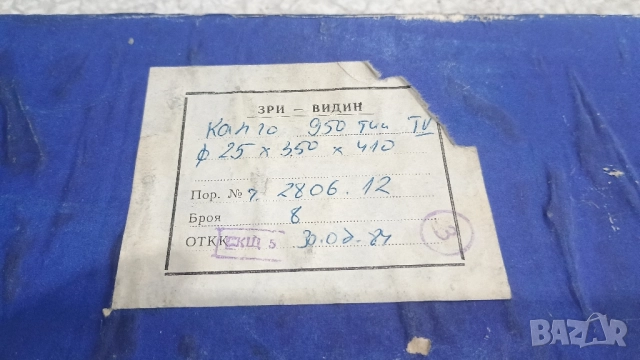 ЗРИ – ВИДИН
Канго 950 тип IV
ф 25 x 350 x 410
Пор. № 7. 2806.12
Броя 8
ОТКК ЕКЩ 5
3
BAZAR